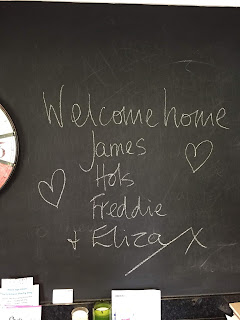 Welcome home
James
Hols
Freddie
+ Eliza X